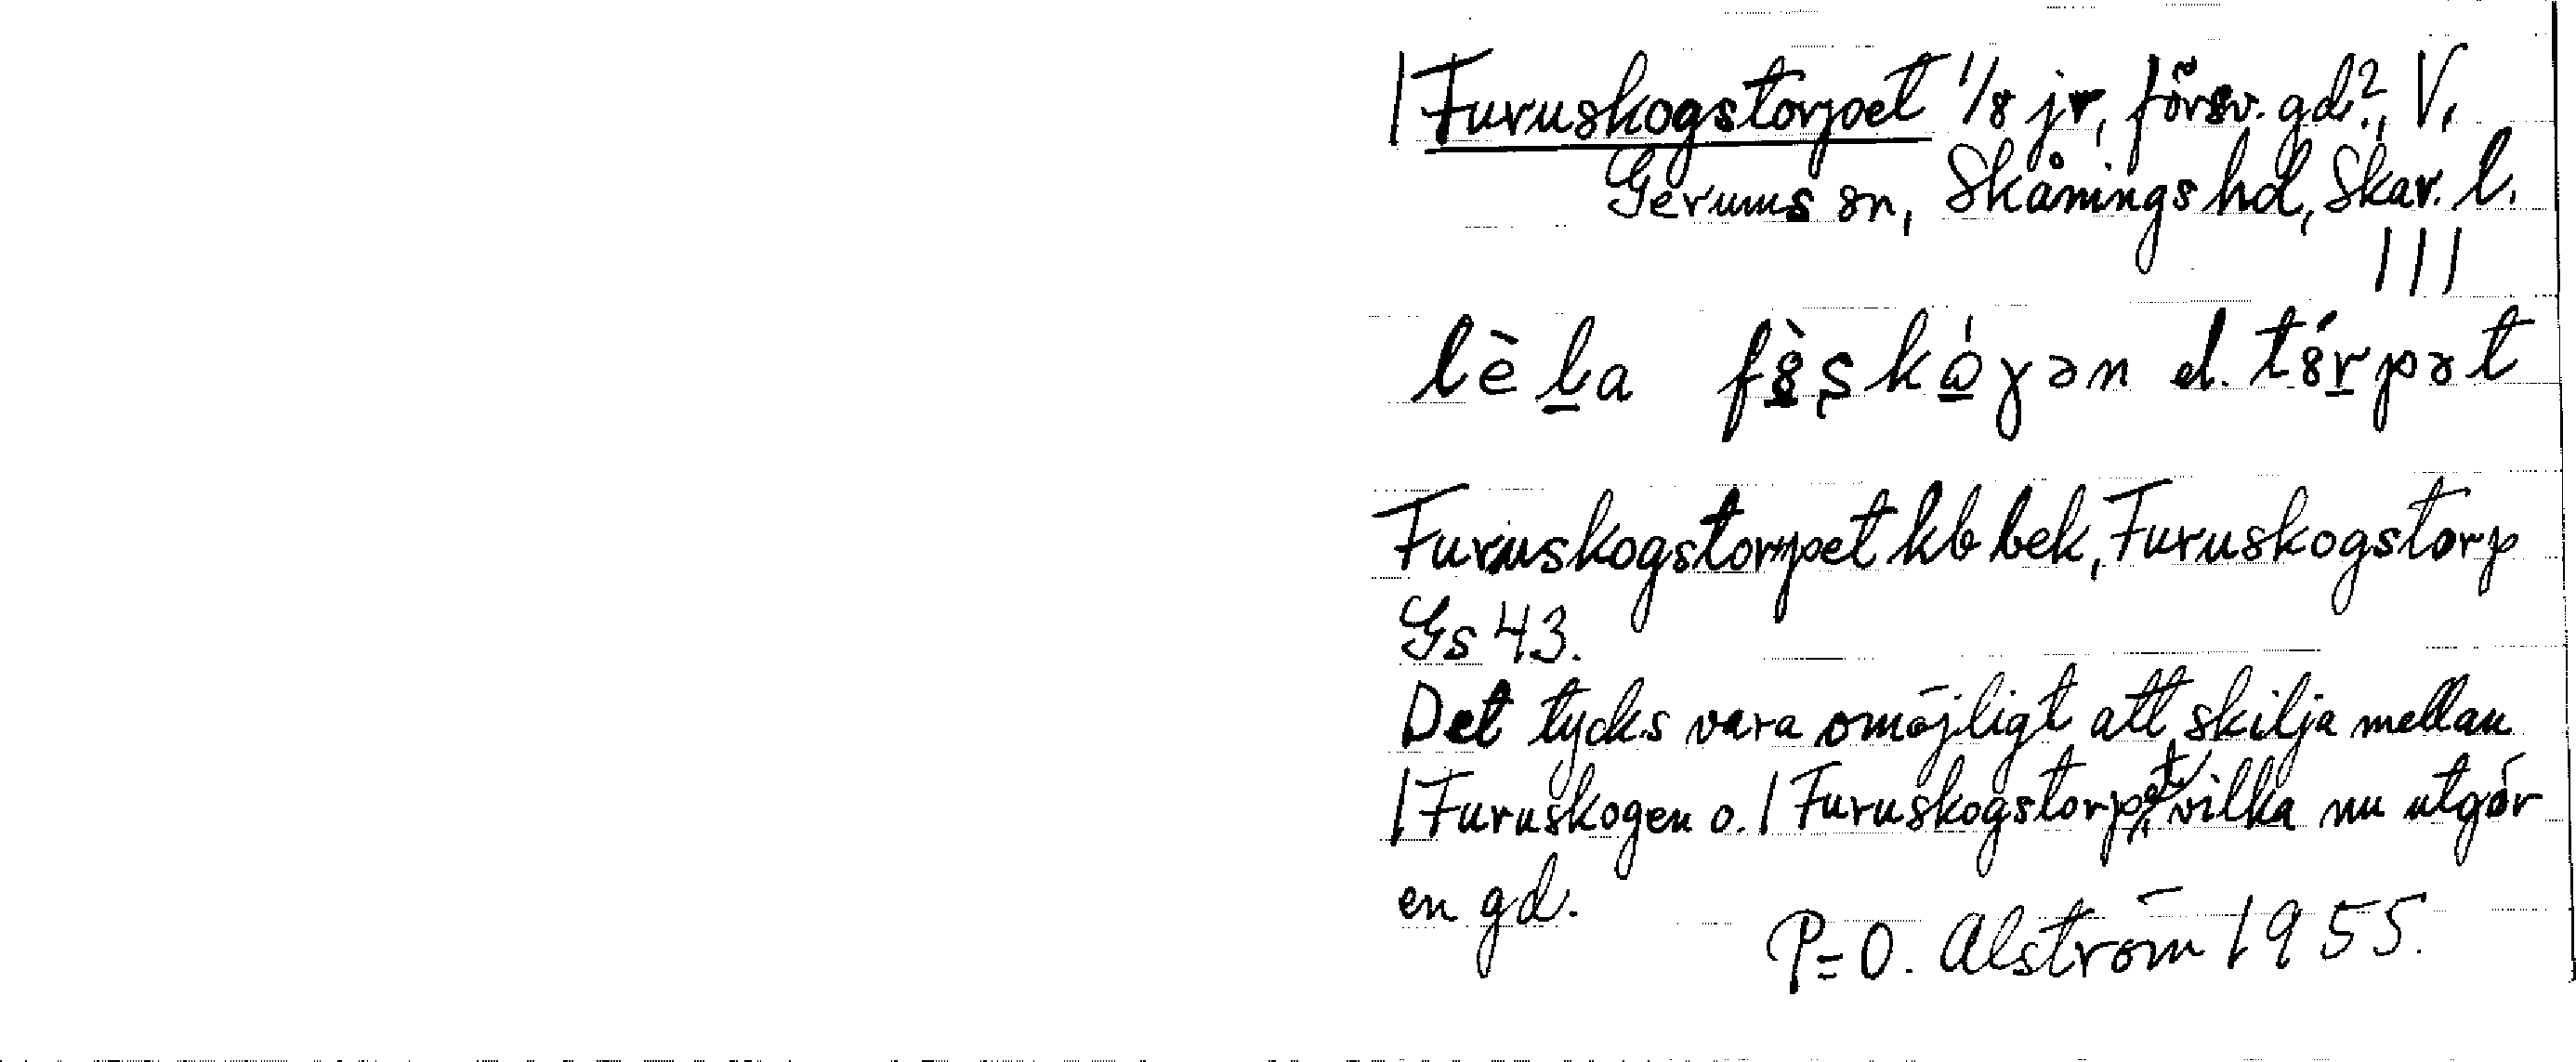 | Furuskogstorpet 1/8 jr, försv. gd?, V,
Gerums sn, Skånings hd, Skar. l.
|||
lèḻa fȣ̀ṣkó̱γən el. tȣ́ṟpət
Furuskogstorpet kb bek, Furuskogstorp
Gs 43.
Det tycks vara omöjligt att skilja mellan
| Furuskogen o. | Furuskogstorpet, vilka nu utgör
en gd.
P=O. Alström 1955.